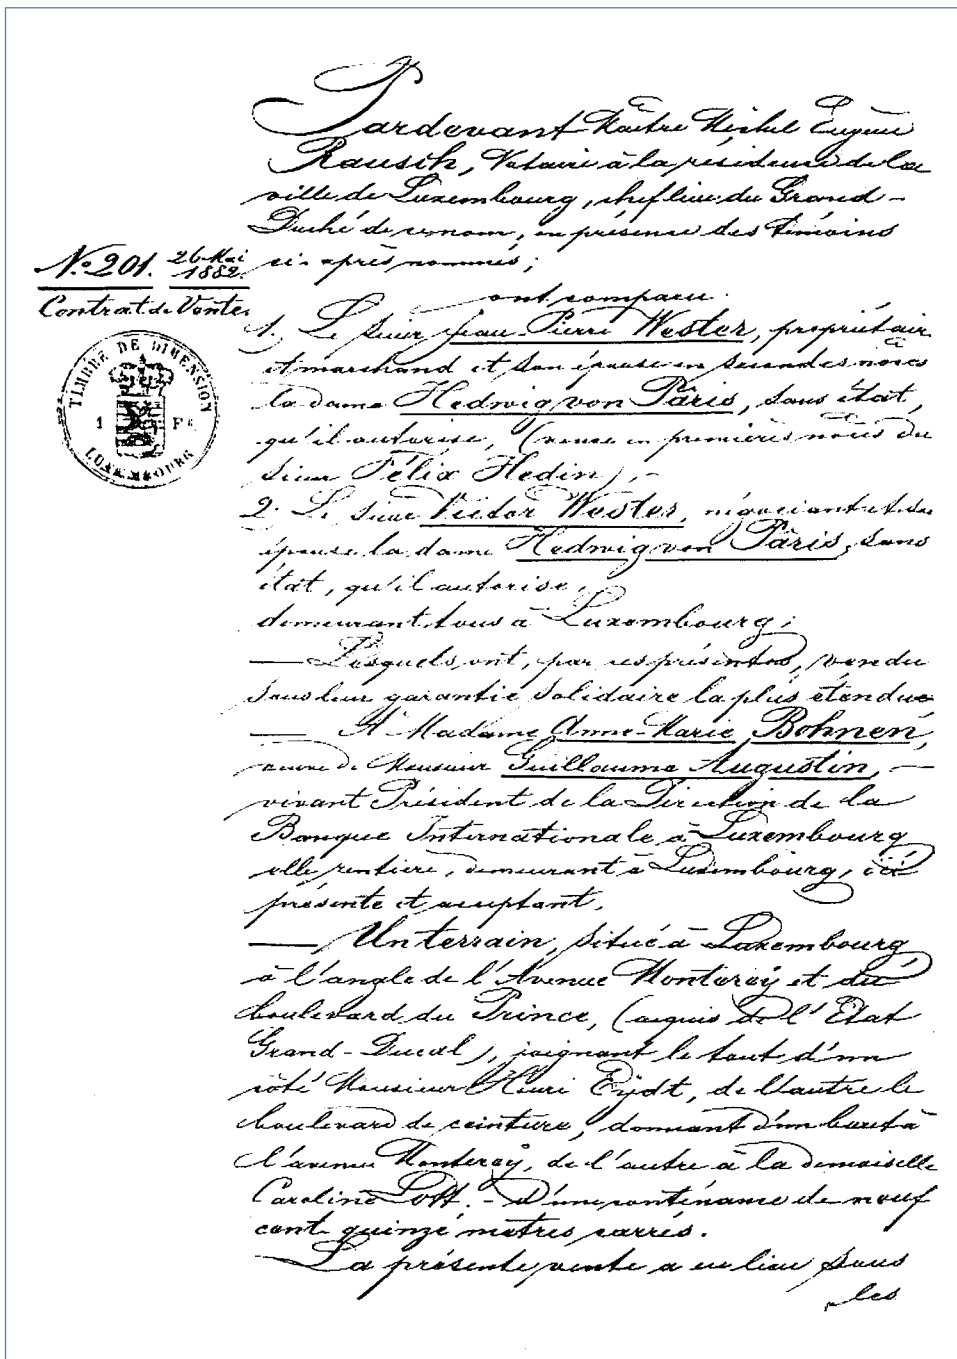 Pardevant Maître Michel Eugène
Rausch, Notaire à la résidence de la
ville de Luxembourg, chef lieu du Grand-
Duché de ce nom, en présence des témoins
ci-après nommés;
N.º 201. 26 Mai
1882.
Contrat de Vente.
TIMBRE DE DIMENSION
1 Fc
LUXEMBOURG
ont comparu:
1. Le Sieur Jean-Pierre Wester, propriétaire
et marchand et son épouse en secondes noces
la dame Hedwig von Pâris, sans état,
qu'il autorise, (veuve en premières noces du
Sieur Félix Hedin),-
2. Le Sieur Victor Wester, négociant et son
épouse la dame Hedwig von Pâris, sans
état, qu'il autorise,
demeurant tous à Luxembourg;
— Lesquels ont, par ces présentes, vendu
sous leur garantie solidaire la plus étendue
— A Madame Anne-Marie Bohnen,
veuve de Monsieur Guillaume Augustin, —
vivant Président de la Direction de la
Banque Internationale à Luxembourg
elle rentière, demeurant à Luxembourg, ici
présente et acceptant,
— Un terrain, situé à Luxembourg,
à l'angle de l'Avenue Monterey et du
boulevard du Prince, (acquis de l'Etat
Grand-Ducal), joignant le tout d'un
côté Monsieur Henri Eydt, de l'autre le
boulevard de ceinture, donnant d'un bout à
l'avenue Monterey, de l'autre à la demoiselle
Caroline Lott. - D'une contenance de neuf
cent quinze mètres carrés.
La présente vente a eu lieu sous
les